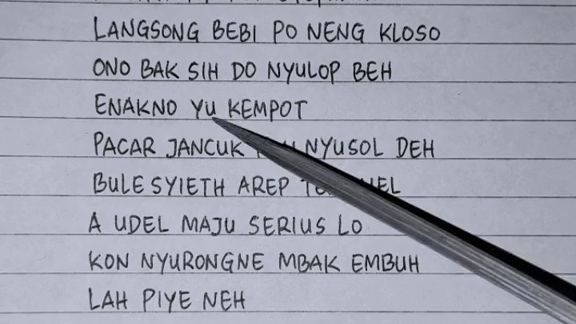 LANGSONG BEBI PO NENG KLOSO
ONO BAK SIH DO NYULOP BEH
ENAKNO YU KEMPOT
PACAR JANCUK NYUSOL DEH
BULE SYIETH AREP
A UDEL MAJU SERIUS LO
KON NYURONGNE MBAK EMBUH
LAH PIYE NEH